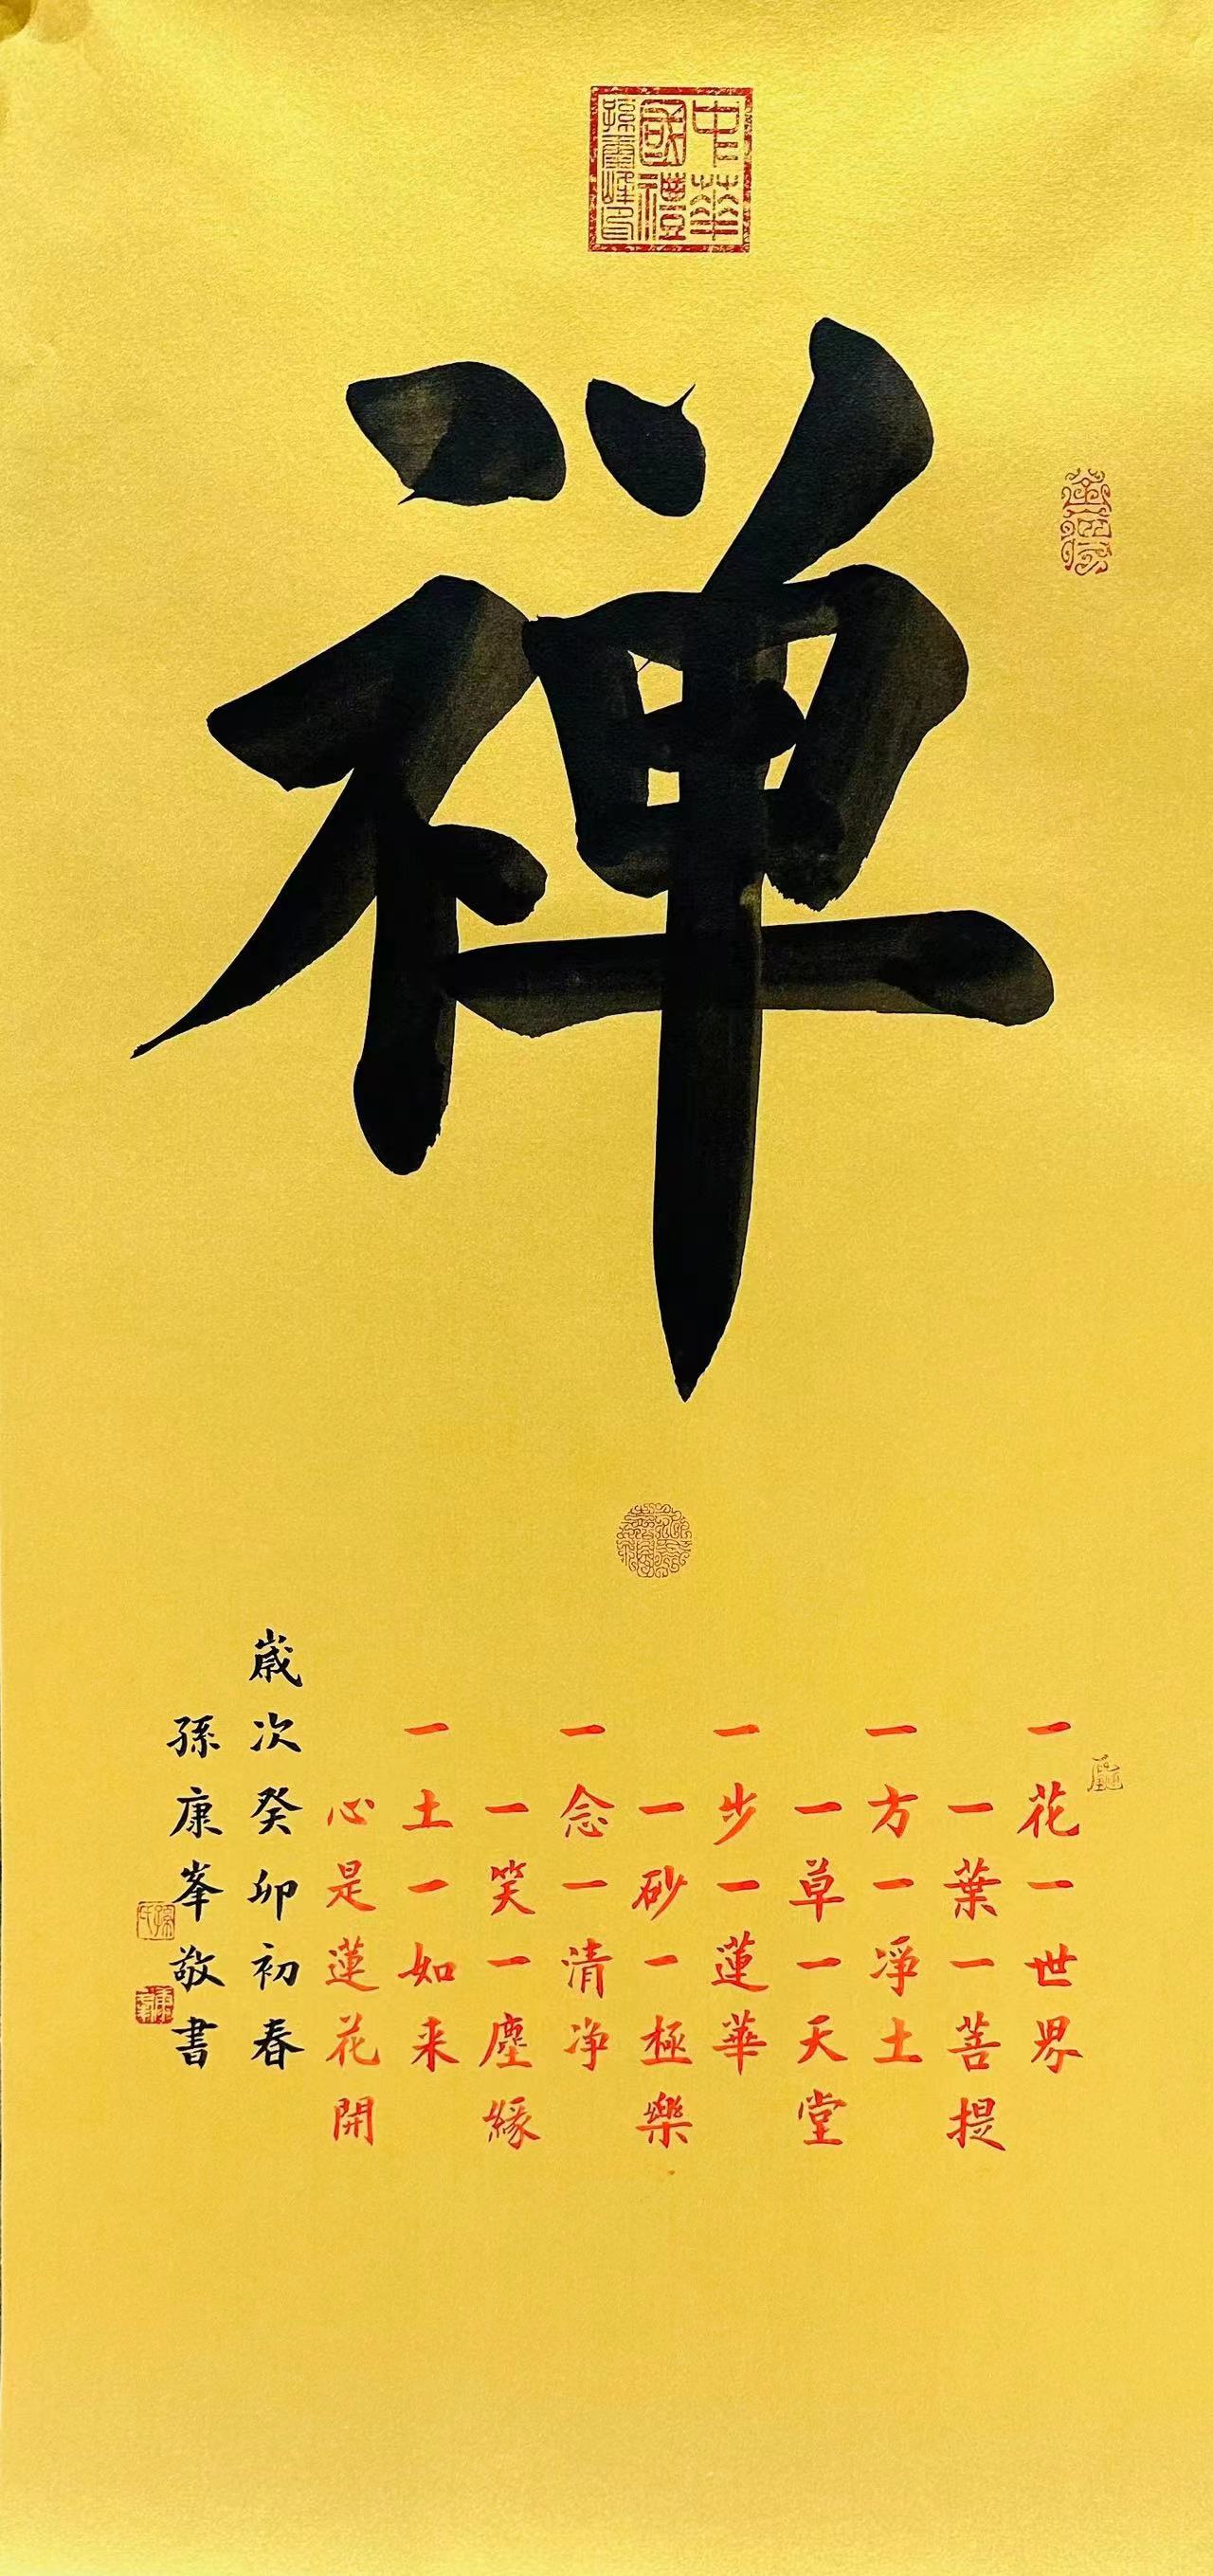 中華
國禮
禅
一花一世界
一葉一菩提
一方一淨土
一草一天堂
一步一蓮華
一砂一極樂
一念一清净
一笑一塵緣
一土一如来
心是蓮花開
歲次癸卯初春
孫康峯敬書
孫氏